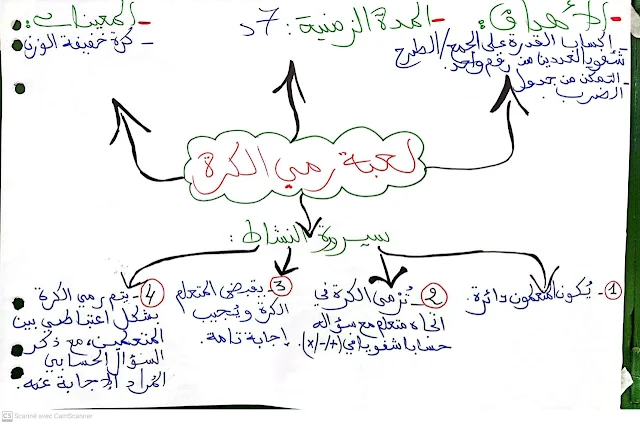 - الأهداف:
- إكساب القدرة على الجمع/الطرح
شفويا لعددين من رقم واحد.
- التمكن من جدول
الضرب.
- المدة الزمنية: 7د
- المعينات:
- كرة خفيفة الوزن
لعبة رمي الكرة
سيرورة النشاط:
1- يُكون المتعلمون دائرة.
2- تُرمى الكرة في
اتجاه متعلم مع سؤاله
حسابا شفويا في (+/-/x).
3- يقبض المتعلم
الكرة ويُجيب
إجابة تامة.
4- يتم رمي الكرة
بشكل اعتباطي بين
المتعلمين، مع ذكر
السؤال الحسابي
المُراد الإجابة عنه.
CS Scanné avec CamScanner